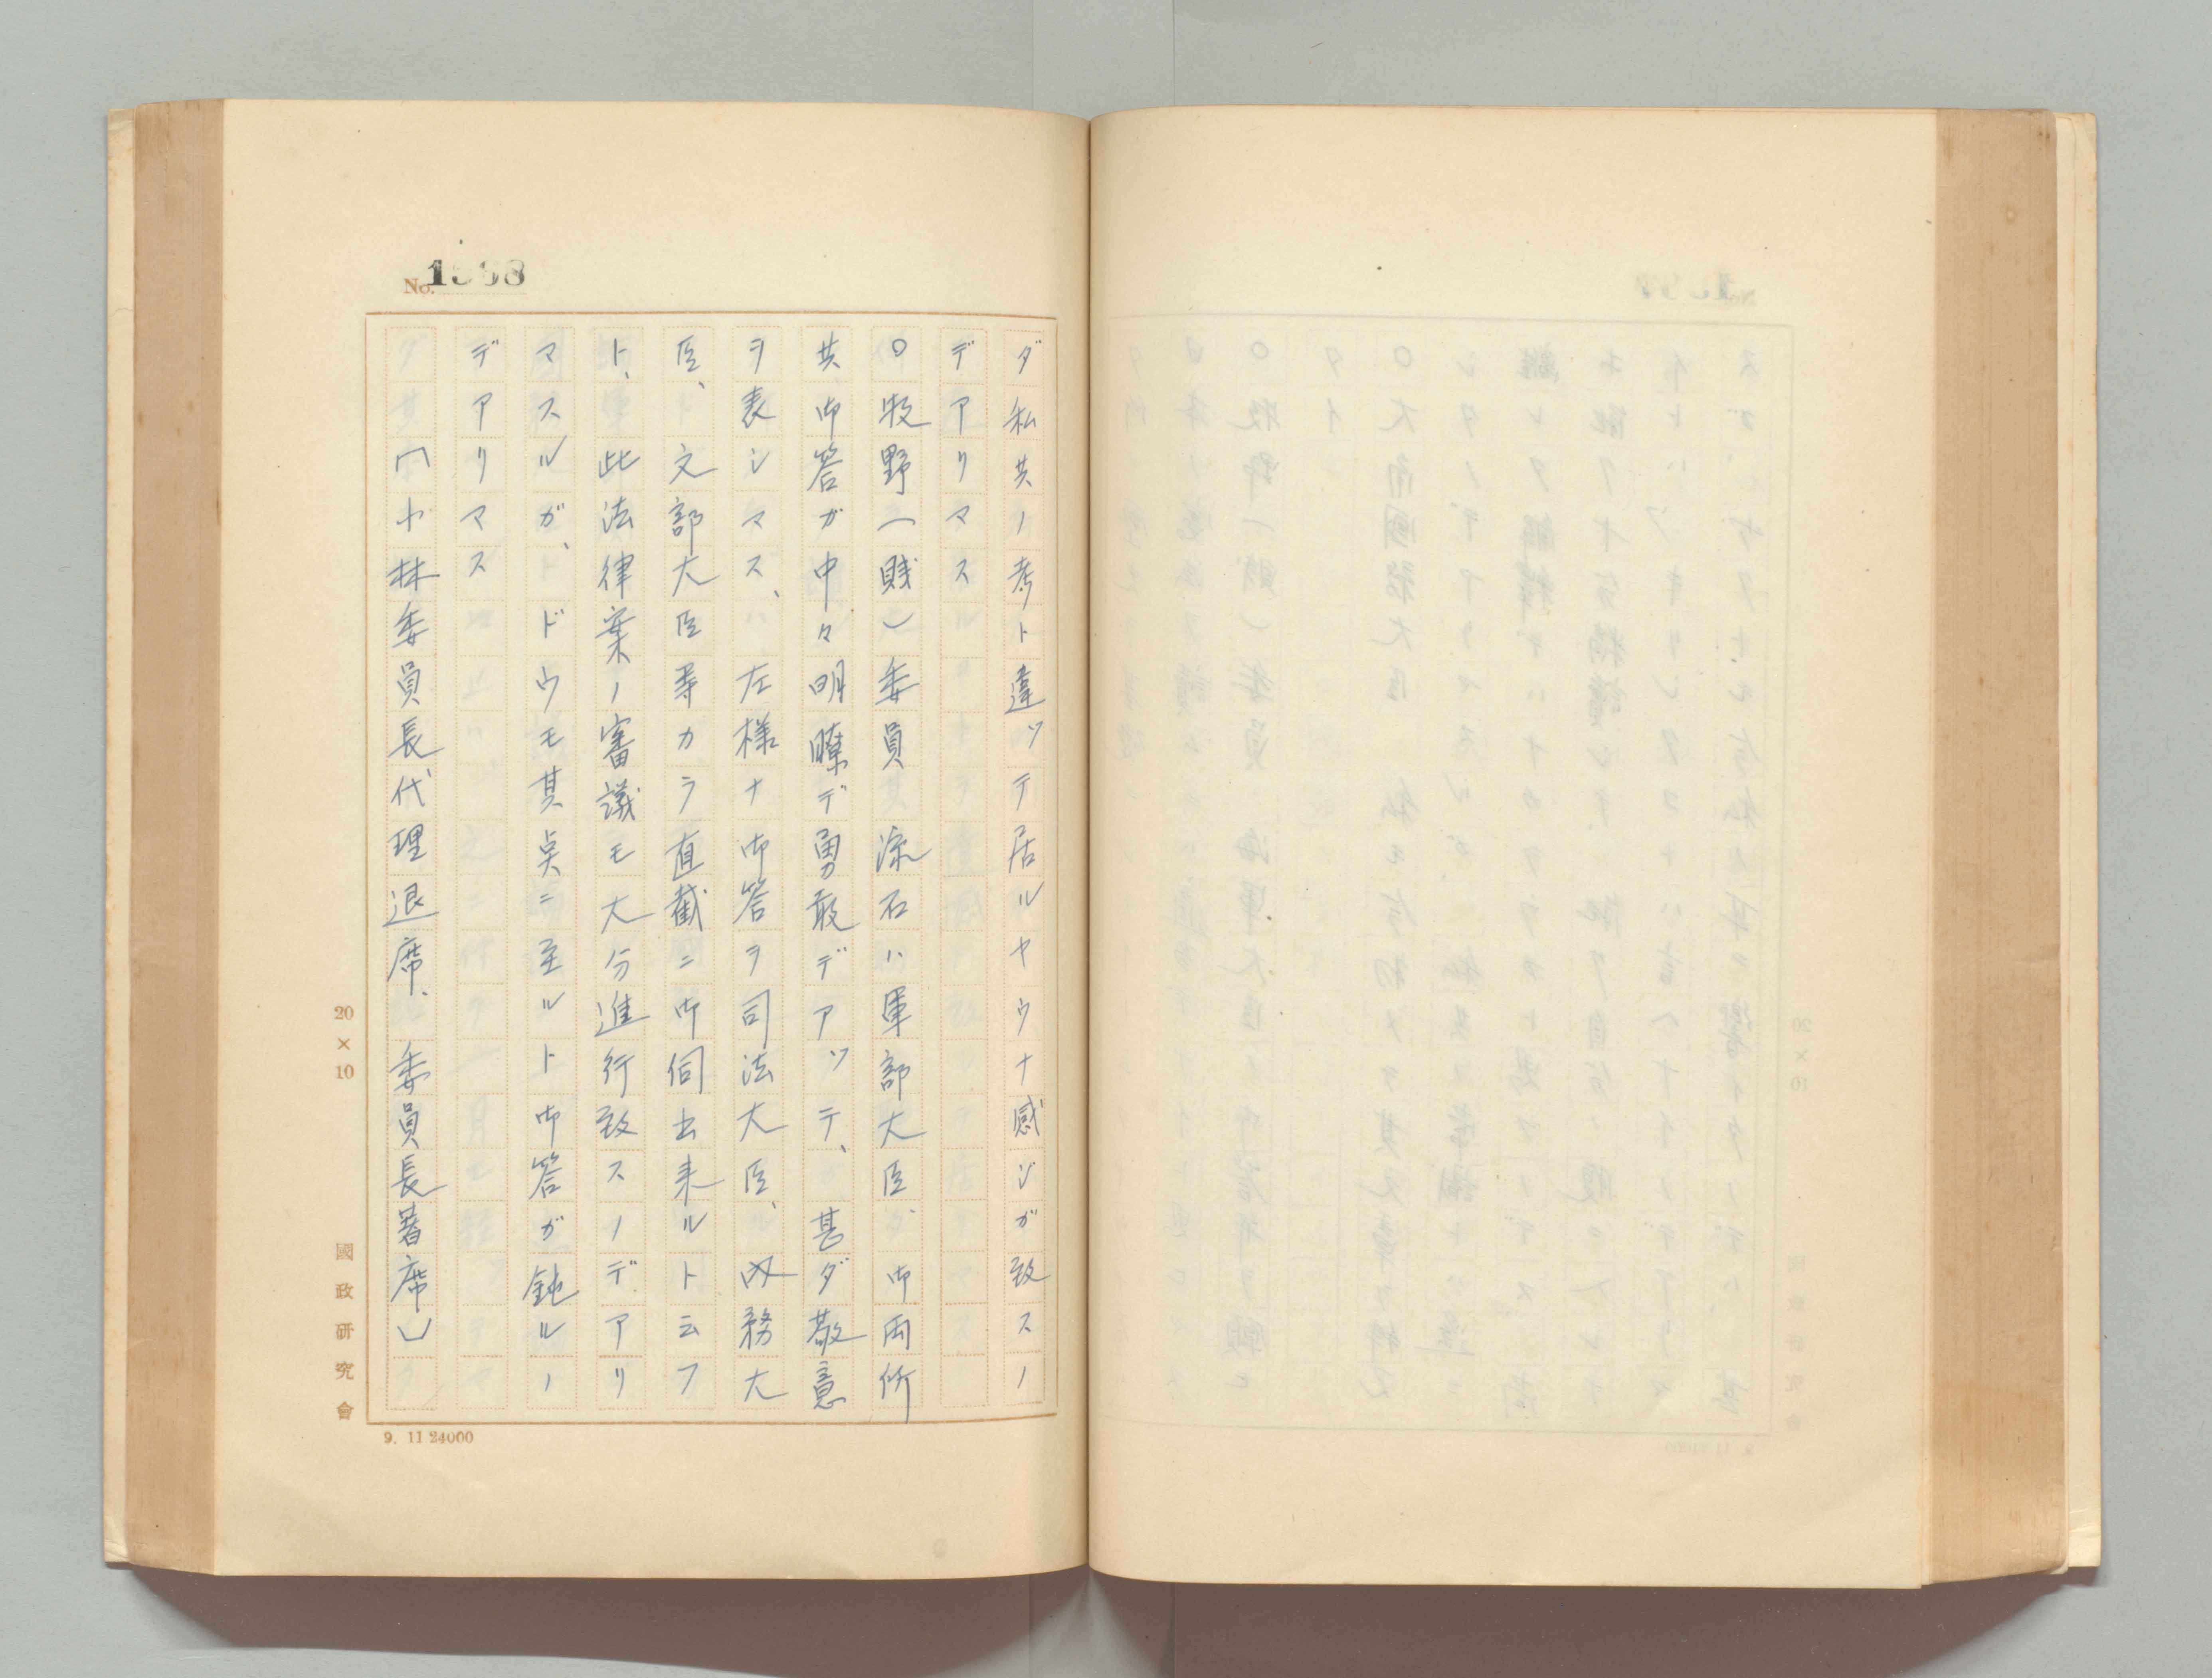 No. 1568
ダ私共ノ考ト違ツテ居ルヤウナ感ジガ致スノ
デアリマス
○牧野(賤)委員 流石ハ軍部大臣ガ御両所
共御答ガ中々明瞭デ勇敢デアツテ、甚ダ敬意
ヲ表シマス、左様ナ御答ヲ司法大臣、内務大
臣、文部大臣等カラ直截ニ御伺出来ルト云フ
ト、此法律案ノ審議モ大分進行致スノデアリ
マスルガ、ドウモ其点ニ至ルト御答ガ鈍ルノ
デアリマス
〔小林委員長代理退席、委員長著席〕
20×10
國政研究會
9. 11 24000